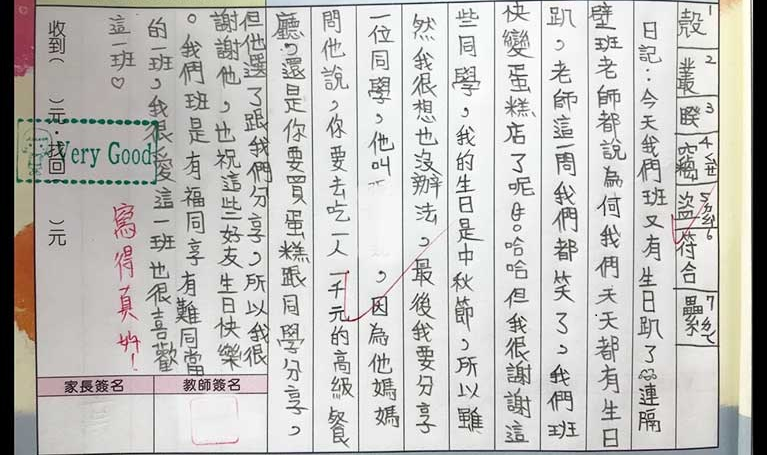 1殼 2叢 3睽 4 盜5 6符合 7纍
日記：今天我們班又有生日趴了連隔
壁班老師都說為何我們天天都有生日
趴，老師這一周我們都笑了，我們班
快變蛋糕店了呢哈哈但我很謝謝這
些同學，我的生日是中秋節，所以雖
然我很想也沒辦法，最後我要分享
一位同學，他叫，因為他媽媽
問他說，你要去吃一人一千元的高級餐
廳，還是你要買蛋糕跟同學分享，
但他選了跟我們分享，所以我很
謝謝他，也祝這些好友生日快樂
。我們班是有福同享有難同當
的一班，我很愛這一班也很喜歡
這一班♡
收到（ ）元．找回（ ）元
Very Good
寫得真好！
家長簽名
教師簽名